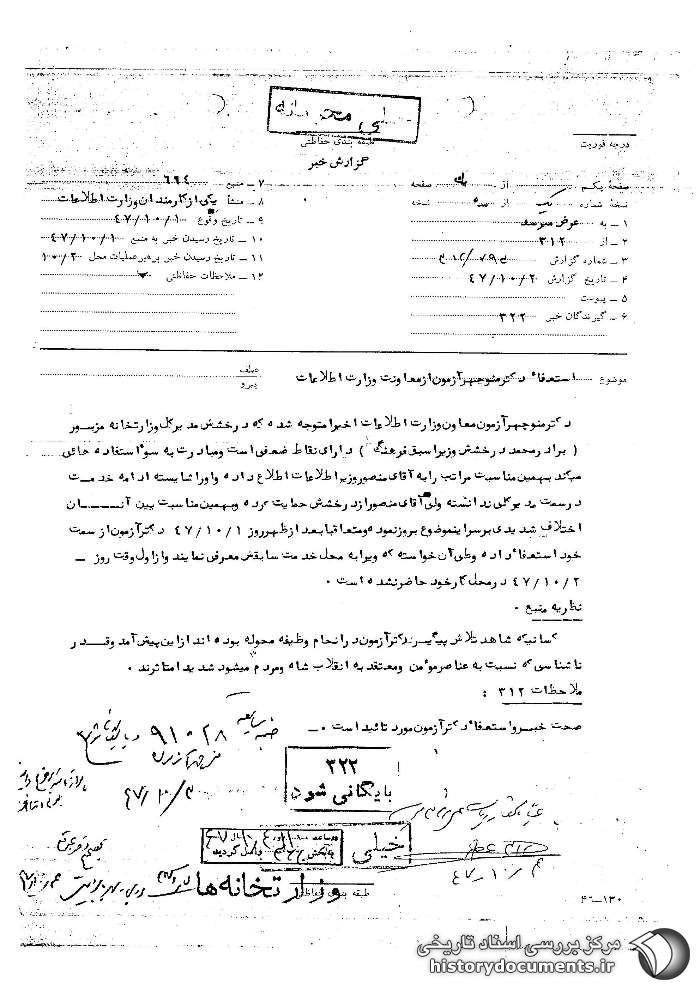 خیلی محرمانه
طبقه بندی حفاظتی
درجه فوریت
گزارش خبر
صفحه یکم از یک صفحه
نسخه شماره یک از سه نسخه
۱ – به عرض میرسد
۲ – از ۳۱۲
۳ – شماره گزارش
۴ – تاریخ گزارش ۴۷/۱۰/۲
۵ – پیوست
۶ – گیرندگان خبر ۳۲۲
۷ – منبع ۶۹۴
۸ – منشأ یکی از کارمندان وزارت اطلاعات
۹ – تاریخ وقوع ۴۷/۱۰/۱
۱۰ – تاریخ رسیدن خبر به منبع ۴۷/۱۰/۱
۱۱ – تاریخ رسیدن خبر برهبر عملیات محل ۱۰/۲
۱۲ – ملاحظات حفاظتی
موضوع استعفای دکتر منوچهر آزمون از معاونت وزارت اطلاعات
عطف
پیرو
دکتر منوچهر آزمون معاون وزارت اطلاعات اخیرا متوجه شده که درخشش مدیر کل وزارتخانه مزبور
( برادر محمد درخشش وزیر اسبق فرهنگ ) دارای نقاط ضعفی است و مبادرت به سوء استفاده هائی
میکند بهمین مناسبت مراتب را به آقای منصور وزیر اطلاعات اطلاع داده و او را شایسته ادامه خدمت
در سمت مدیر کلی ندانسته ولی آقای منصور از درخشش حمایت کرده و بهمین مناسبت بین آنان
اختلاف شدیدی بر سر این موضوع بروز نموده و متعاقبا بعد از ظهر روز ۴۷/۱۰/۱ دکتر آزمون از سمت
خود استعفا داده و طی آن خواسته که ویرا به محل خدمت سابقش معرفی نمایند و از اول وقت روز –
۴۷/۱۰/۲ در محل کار خود حاضر نشده است .
نظریه منبع .
کسانیکه شاهد تلاش پیگیر دکتر آزمون در انجام وظیفه محوله بوده اند از این پیش آمد و قدر
نا شناسی که نسبت به عناصر موءمن و معتقد به انقلاب شاه و مردم میشود شدیدا متاثرند .
ملاحظات ۳۱۲ :
صحت خبر و استعفای دکتر آزمون مورد تائید است .
۹۱۰۲۸
۴۷/۱۰/۳
۳۲۲
بایگانی شود
خیلی
واصل گردید
۴۷/۱۰/۳
وزارتخانه‌ها
طبقه بندی حفاظتی
۴۶–۱۳۰
مرکز بررسی اسناد تاریخی
historydocuments.ir